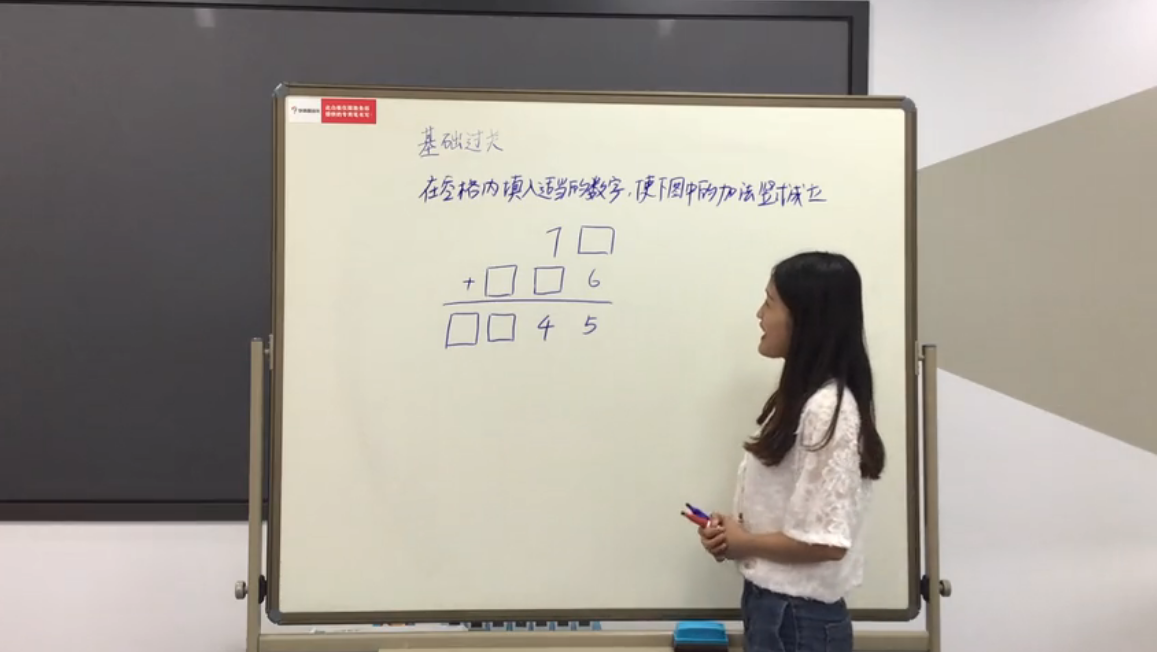 基础过关
在空格内填入适当的数字,使下图中的加法竖式成立
7 □
+ □ □ 6
□ □ 4 5